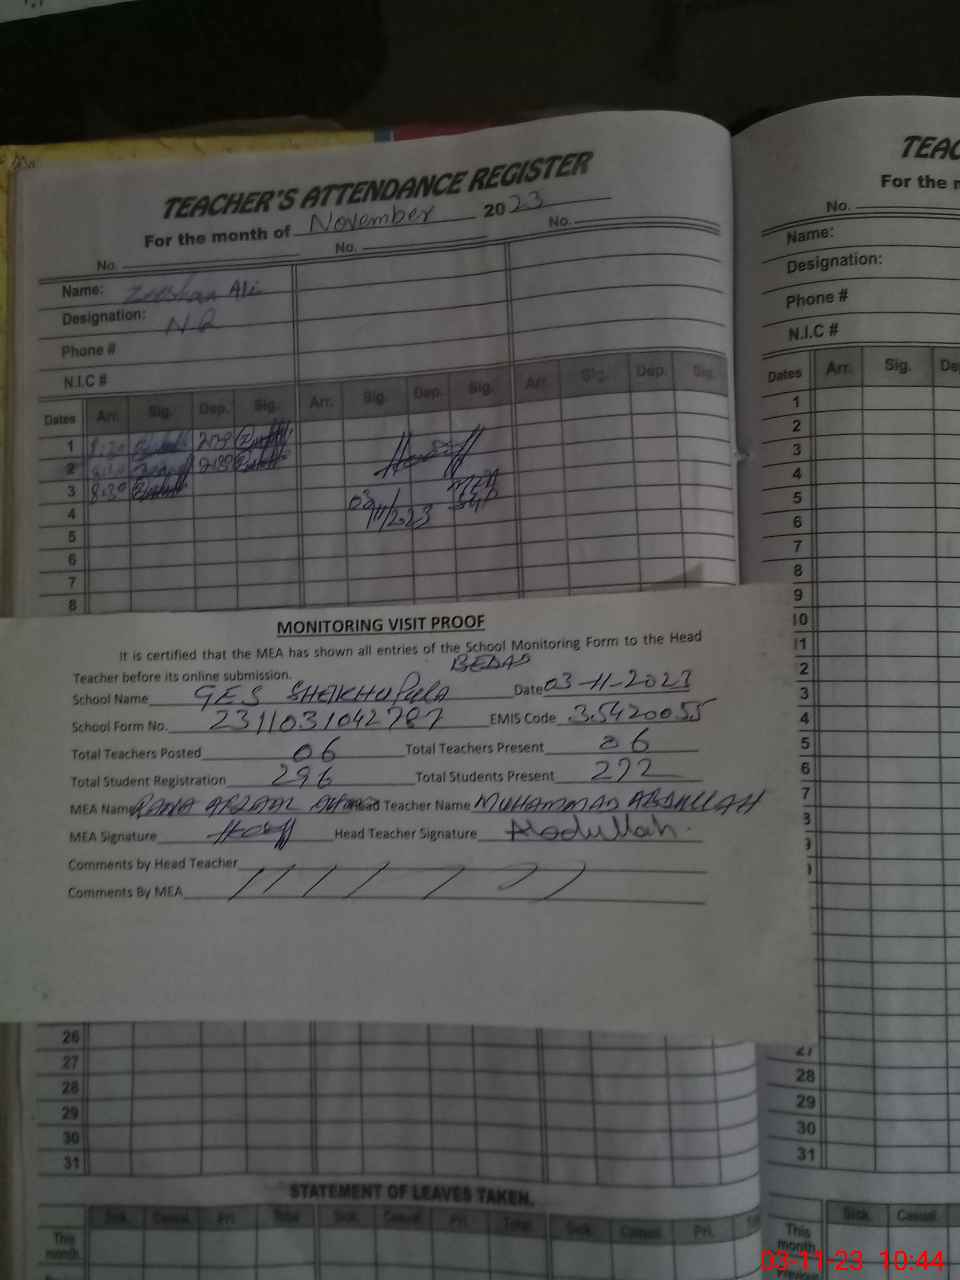 TEACHER'S ATTENDANCE REGISTER
For the month of November 2023
No. No. No.
Name: Zeeshan Ali
Designation: N.Q
Phone #
N.I.C #
Dates Arr. Sig. Dep. Sig. Arr. Sig. Dep. Sig. Arr. Sig. Dep. Sig.
1 8:30 2:30
2 8:30 2:30
3 8:30
4
5
6
7
8
03/11/2023
MEA
MONITORING VISIT PROOF
It is certified that the MEA has shown all entries of the School Monitoring Form to the Head
Teacher before its online submission.
BEDAD
School Name GES SHEIKHUPURA Date 03-11-2023
School Form No. 2311031042787 EMIS Code 35420055
Total Teachers Posted 06 Total Teachers Present 06
Total Student Registration 296 Total Students Present 272
MEA Name RANA AFZAAL Head Teacher Name MUHAMMAD ABDULLAH
MEA Signature Head Teacher Signature Abdullah.
Comments by Head Teacher
Comments By MEA
26
27
28
29
30
31
STATEMENT OF LEAVES TAKEN.
Sick. Casual. Pri. Total Sick. Casual. Pri. Total Sick. Casual. Pri.
This
month
TEAC
For the m
No.
Name:
Designation:
Phone #
N.I.C #
Dates Arr. Sig. De
1
2
3
4
5
6
7
8
9
10
11
2
3
4
5
6
7
28
29
30
31
Sick. Casual.
This
month
03-11-23 10:44